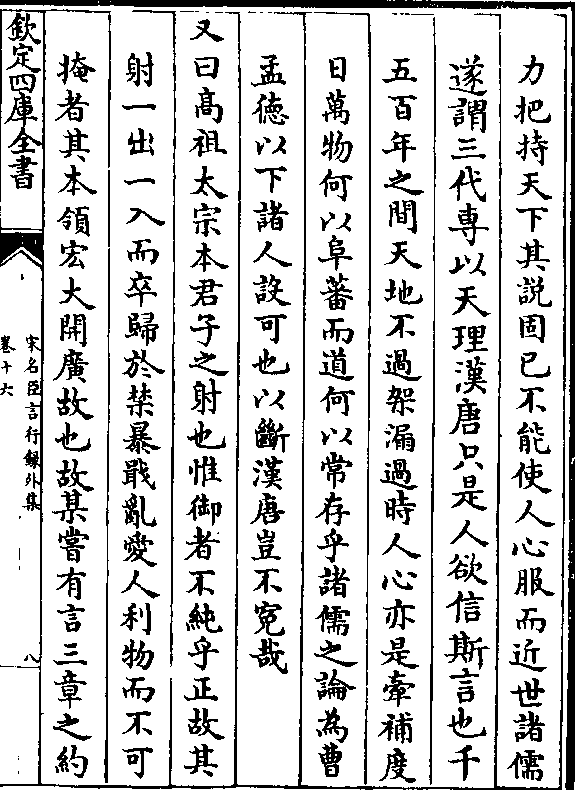 力把持天下其説固已不能使人心服而近世諸儒
遂謂三代専以天理漢唐只是人欲信斯言也千
五百年之間天地不過架漏過時人心亦是牽補度
日萬物何以阜蕃而道何以常存乎諸儒之論為曹
孟德以下諸人設可也以斷漢唐豈不寃哉
又曰髙祖太宗本君子之射也惟御者不純乎正故其
射一出一入而卒歸於禁暴戢亂愛人利物而不可
掩者其本領宏大開廣故也故某嘗有言三章之約
欽定四庫全書
宋名臣言行録外集
卷十六
八